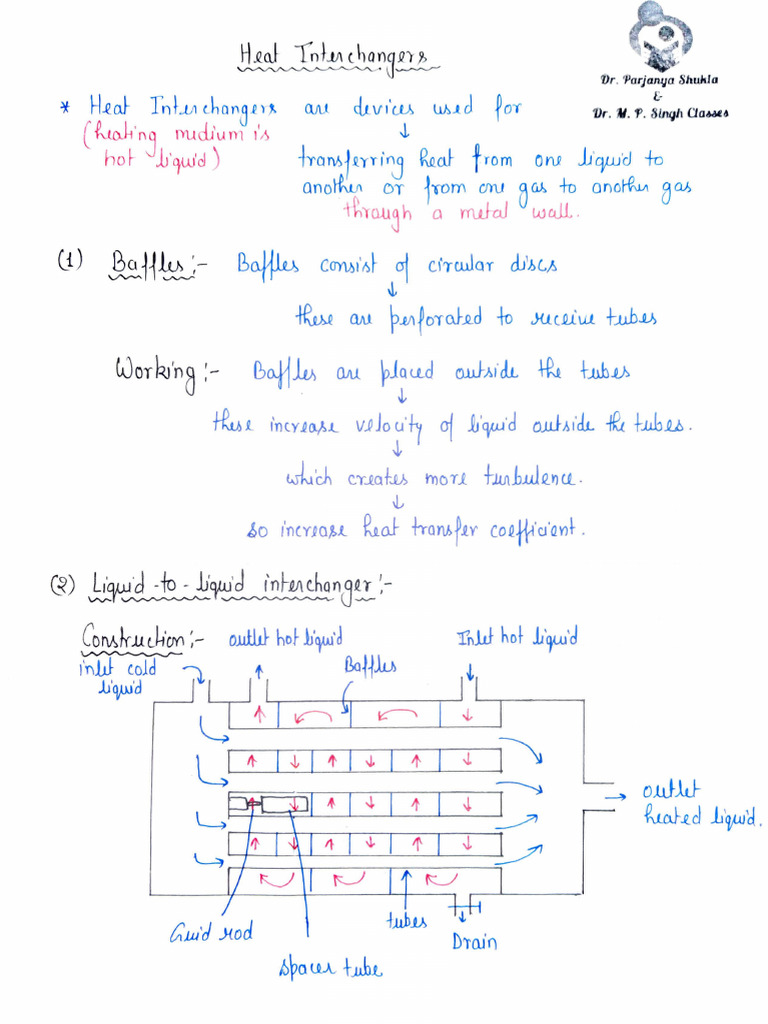 Heat Interchangers
Dr. Parjanya Shukla
&
Dr. M. P. Singh Classes
* Heat Interchangers are devices used for
(heating medium is
hot liquid)
↓
transferring heat from one liquid to
another or from one gas to another gas
through a metal wall.
(1) Baffles:- Baffles consist of circular discs
↓
these are perforated to receive tubes
Working:- Baffles are placed outside the tubes
↓
these increase velocity of liquid outside the tubes.
↓
which creates more turbulence.
↓
so increase heat transfer coefficient.
(2) Liquid-to-liquid interchanger:-
Construction:- outlet hot liquid Inlet hot liquid
inlet cold
liquid
Baffles
outlet
heated liquid.
Guid rod
tubes
Drain
spacer tube